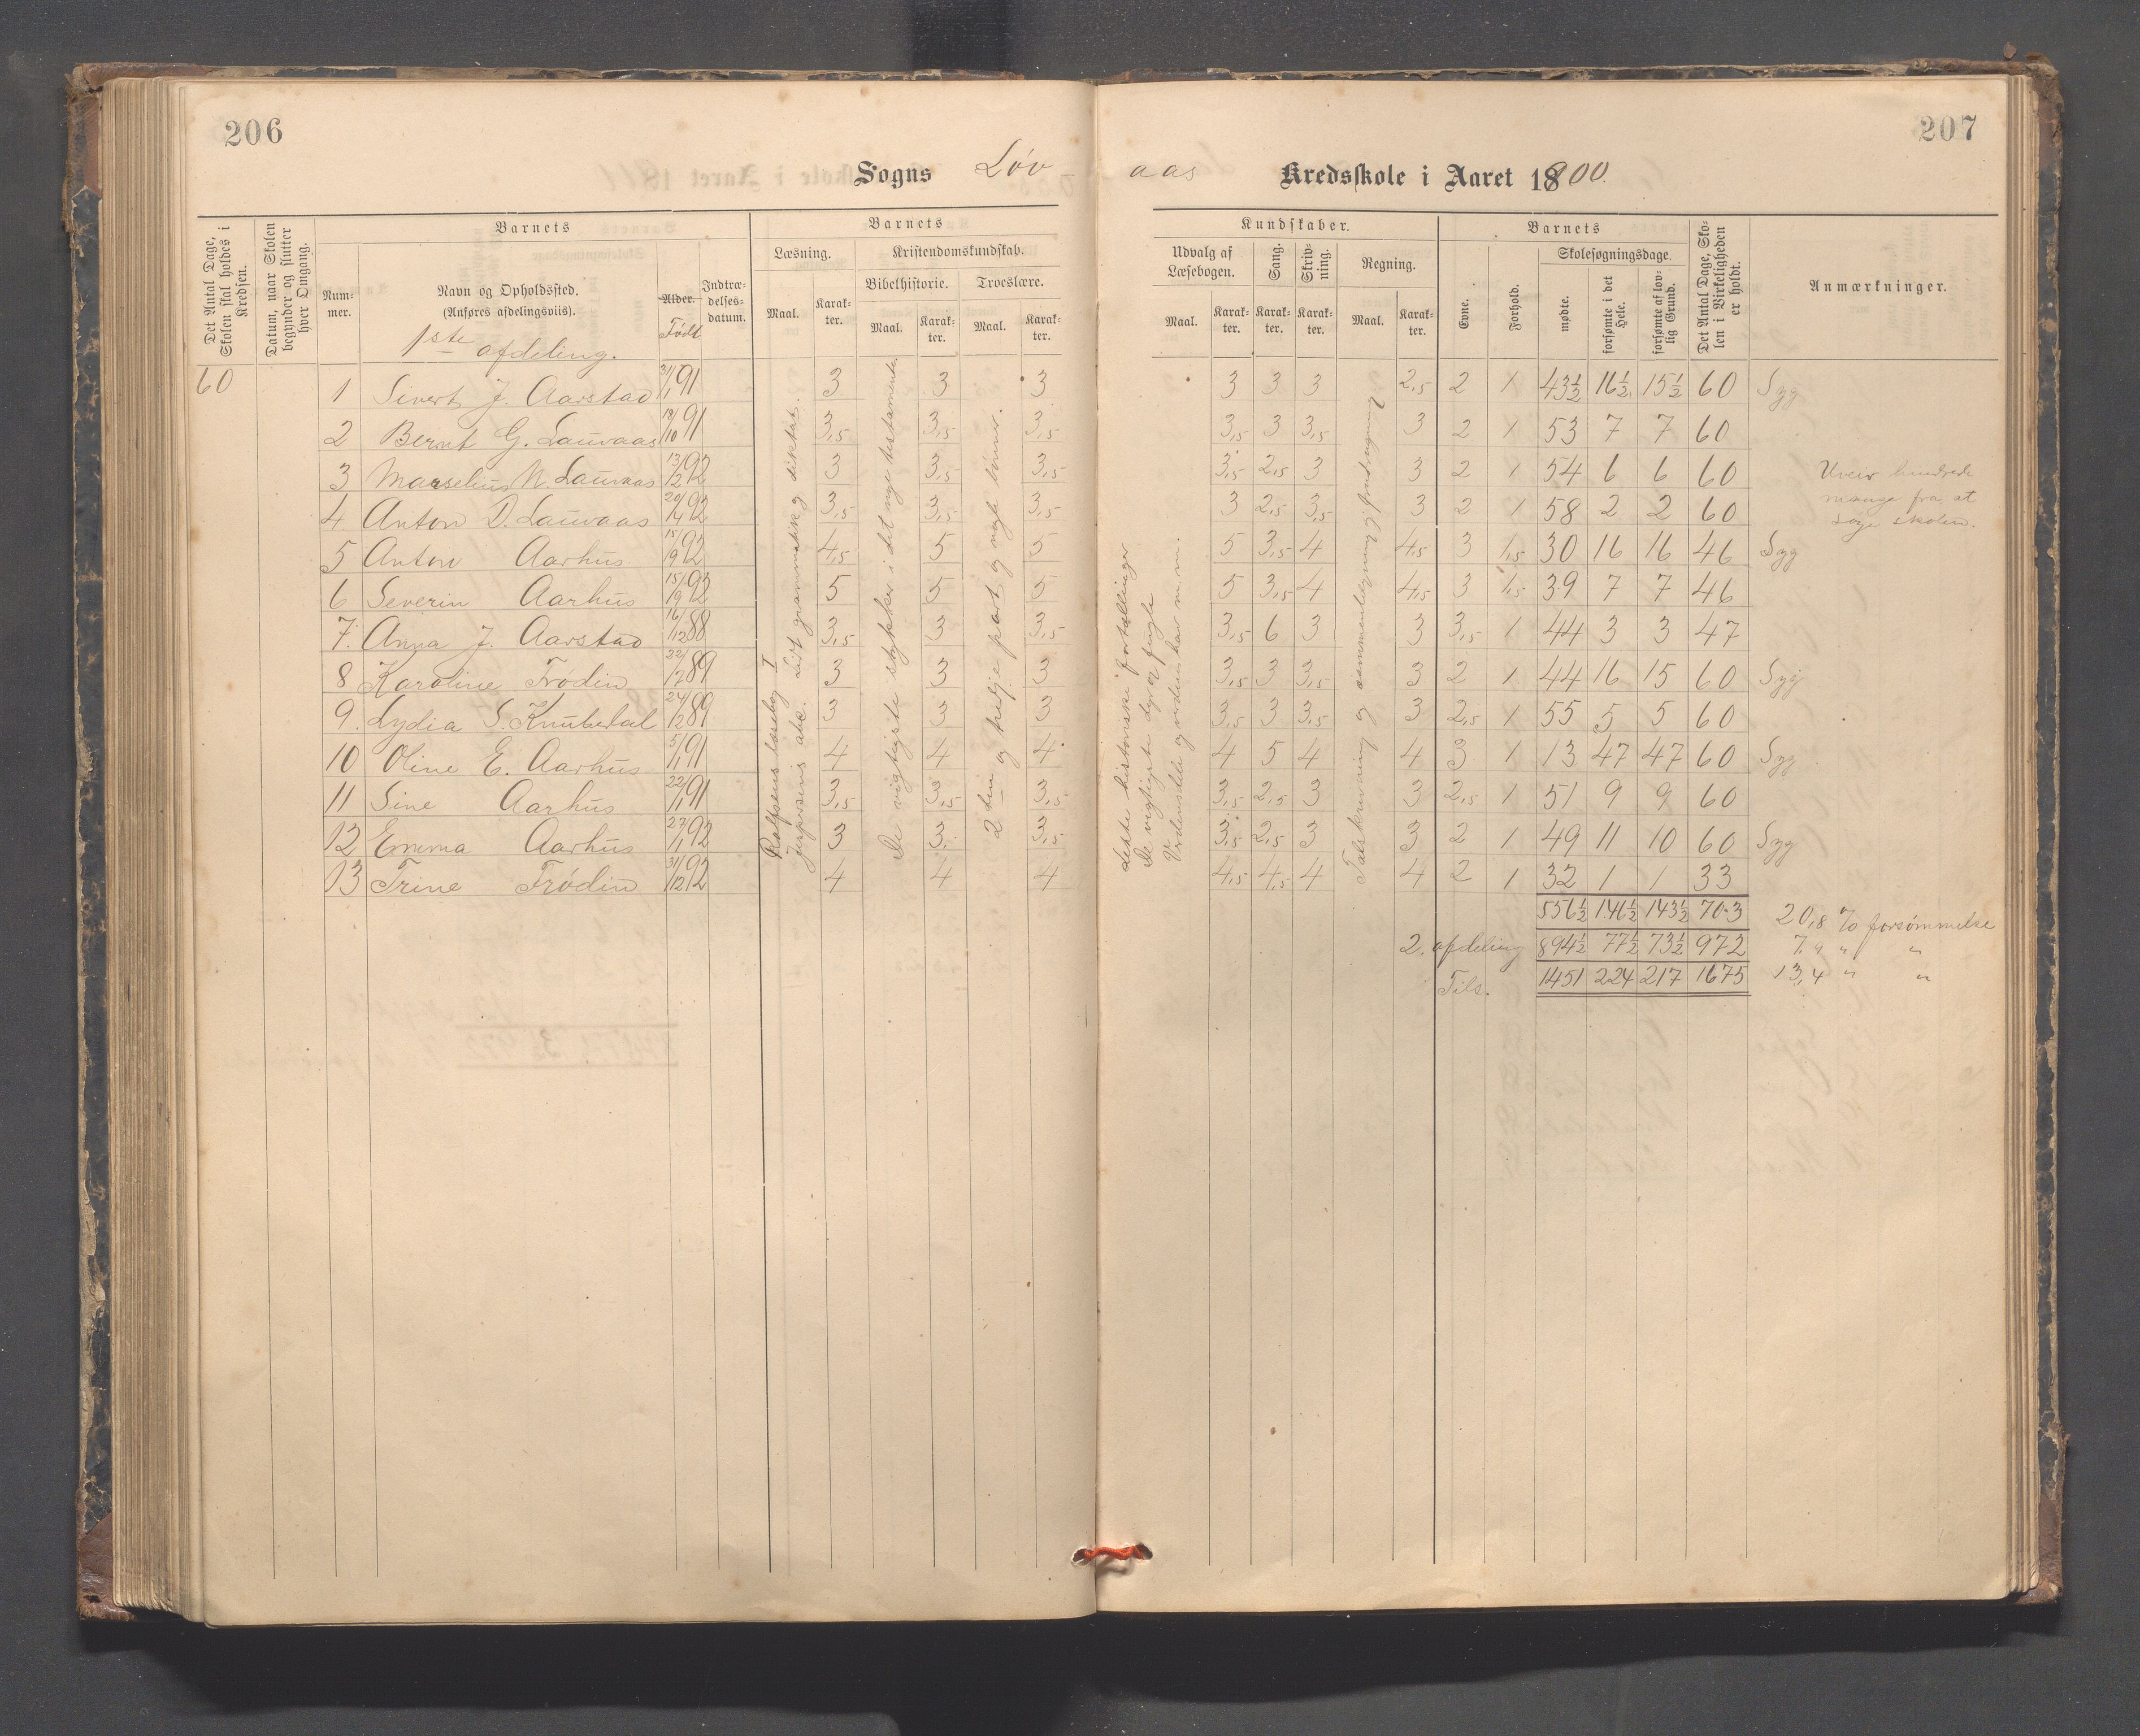 206
207
Sogns Löv-
aas Kredsskole i Aaret 1900.
Det Antal Dage, Skolen skal holdes i Kredsen.
Datum, naar Skolen begynder og slutter hver Omgang.
Barnets
Num-mer.
Navn og Opholdssted.
(Anføres afdelingsviis).
1ste afdeling.
Alder. Födt
Indtræ-delses-datum.
Barnets
Læsning.
Kristendomskundskab.
Bibelhistorie. Troeslære.
Maal. Karak-ter. Maal. Karak-ter. Maal. Karak-ter.
Kundskaber.
Udvalg af Læsebogen. Sang. Skriv-ning. Regning.
Maal. Karak-ter. Karak-ter. Karak-ter. Maal. Karak-ter.
Barnets
Evne. Forhold.
Skolesøgningsdage.
mødte. forsømte i det Hele. forsømte af lov-lig Grund.
Det Antal Dage, Sko-len i Virkeligheden er holdt.
Anmærkninger.
60
1 Sivert J. Aarstad 31/1 91 3 3 3 3 3 3 2,5 2 1 43½ 16½ 15½ 60 Syg
2 Bernt G. Lauvaas 18/10 91 3,5 3,5 3,5 3,5 3 3,5 3 2 1 53 7 7 60
3 Marselius N. Lauvaas 13/2 92 3 3,5 3,5 3,5 2,5 3 3 2 1 54 6 6 60
4 Anton D. Lauvaas 20/4 92 3,5 3,5 3,5 3 2,5 3,5 3 2 1 58 2 2 60
5 Anton Aarhus 15/9 92 4,5 5 5 5 3,5 4 4,5 3 1,5 30 16 16 46 Syg
6 Severin Aarhus 15/9 92 5 5 5 5 3,5 4 4,5 3 1,5 39 7 7 46
7. Anna J. Aarstad 16/12 88 3,5 3 3,5 3,5 6 3 3 3,5 1 44 3 3 47
8 Karoline Frödin 22/7 89 3 3 3 3,5 3 3,5 3 2 1 44 16 15 60 Syg
9. Lydia S. Knubedal 24/2 89 3 3 3 3,5 3 3,5 3 2,5 1 55 5 5 60
10 Oline E. Aarhus 5/1 91 4 4 4 4 5 4 4 3 1 13 47 47 60 Syg
11 Sine Aarhus 22/1 91 3,5 3,5 3,5 3,5 2,5 3 3 2,5 1 51 9 9 60
12 Emma Aarhus 27/1 92 3 3 3,5 3,5 2,5 3 3 2 1 49 11 10 60 Syg
13 Trine Frödin 31/12 92 4 4 4 4,5 4,5 4 4 2 1 32 1 1 33
Rolfsens læsebog I
Lidt grammatik og diktat.
De vigtigste stykker i det nye testamente.
2den og tredje part og nogle bönner.
deste historiske fortællinger
De vigtigste dyr og fugle
Verdensdele og verdenshav m. m.
Talskrivning og sammenlægning og fradragning
Uveir hindrede
mange fra at
söge skolen.
556½ 146½ 143½ 703 20,8 % forsömmelse
2. afdeling 894½ 77½ 73½ 972 7,9 " "
Tils. 1451 224 217 1675 13,4 " "